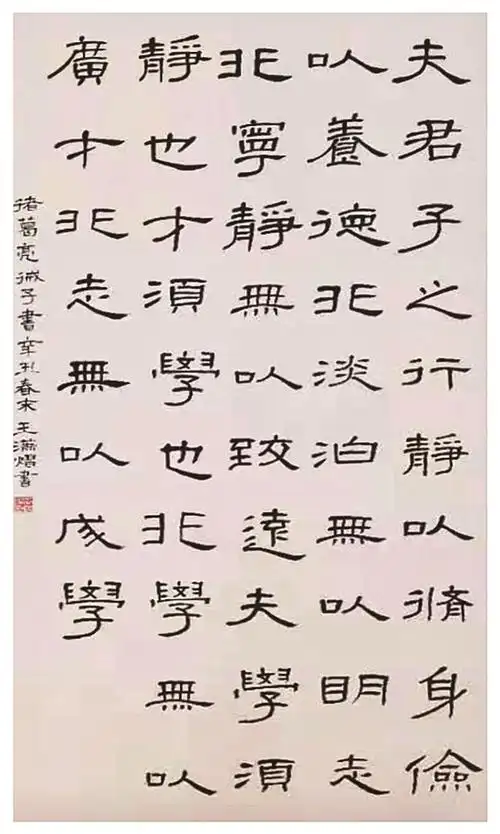 夫君子之行靜以脩身儉
以養德非淡泊無以明志
非寧靜無以致遠夫學須
靜也才須學也非學無以
廣才非志無以成學
諸葛亮誡子書辛丑春末王滿熠書